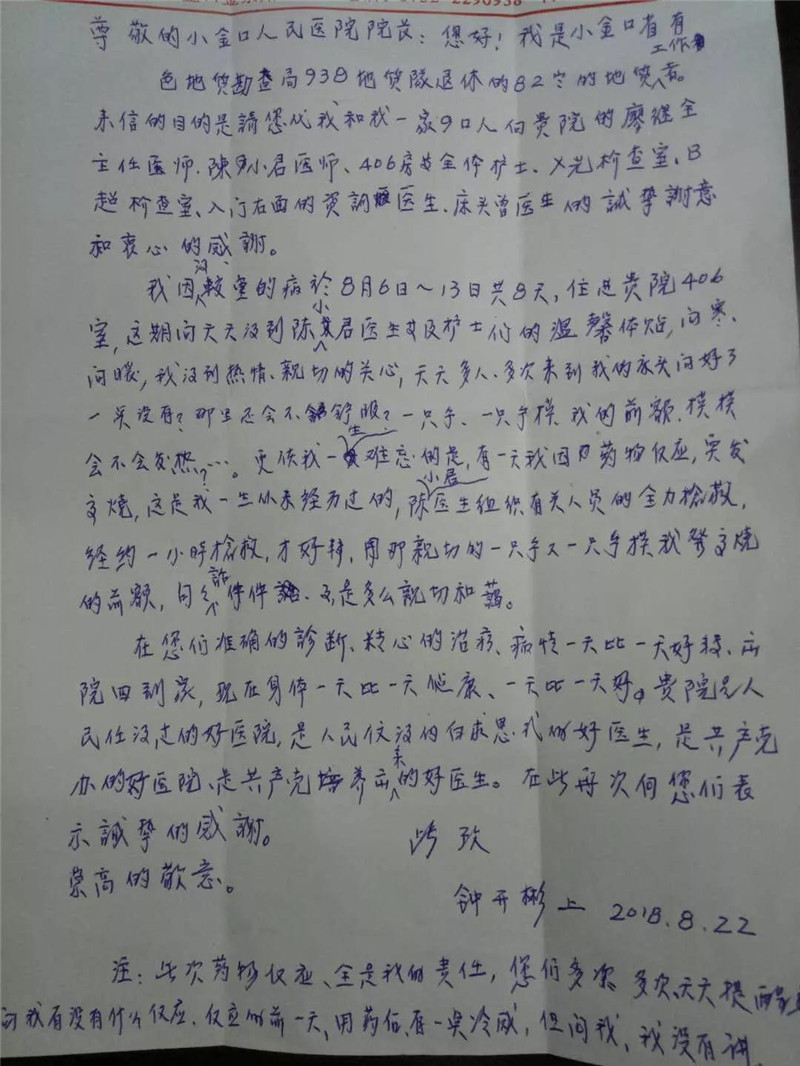 2290938
尊敬的小金口人民医院院长：您好！我是小金口省有
色地质勘查局938地质隊退休的82岁的地质工作者。
来信的目的是請您代我和我一家9口人向贵院的廖继全
主任医师、陳小君医师、406房及全体护士、X光检查室、B
超检查室、入门右面的資詢医生、床头曾医生的誠挚謝意
和衷心的感謝。
我因较重的病於8月6日～13日共8天，住进贵院406
室，这期间天天得到陈小君医生及护士们的温馨体贴，问寒、
问暖，我得到热情、親切的关心，天天多人、多次来到我的床头问好了
一点没有？那里还会不会舒服？一只手、一只手摸我的前额，摸摸
会不会发热？…。更使我一生难忘的是，有一天我因药物反应，突发
高烧，这是我一生从未经历过的，陈小君医生组织有关人员的全力搶救，
经约一小时搶救，才好转，用那親切的一只手又一只手摸我發高烧
的前额，句句話、件件、是多么親切和藹。
在您们准确的診断、精心的治疗、病情一天比一天好转、出
院回到家，现在身体一天比一天健康、一天比一天好。贵院是人
民信得过的好医院，是人民信得的白求恩式的好医生，是共产党
办的好医院、是共产党培养出来的好医生。在此再次向您们表
示誠挚的感謝。 此致
崇高的敬意。
钟开彬上 2018.8.22
注：此次药物反应、全是我的责任，您们多次多次、天天提醒
问我有没有什么反应，反应的前一天，用药后，有一点冷感，但问我，我没有讲